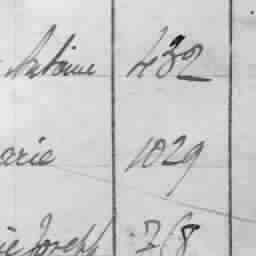 Antoine 432
arie 1029
ie Joseph 768